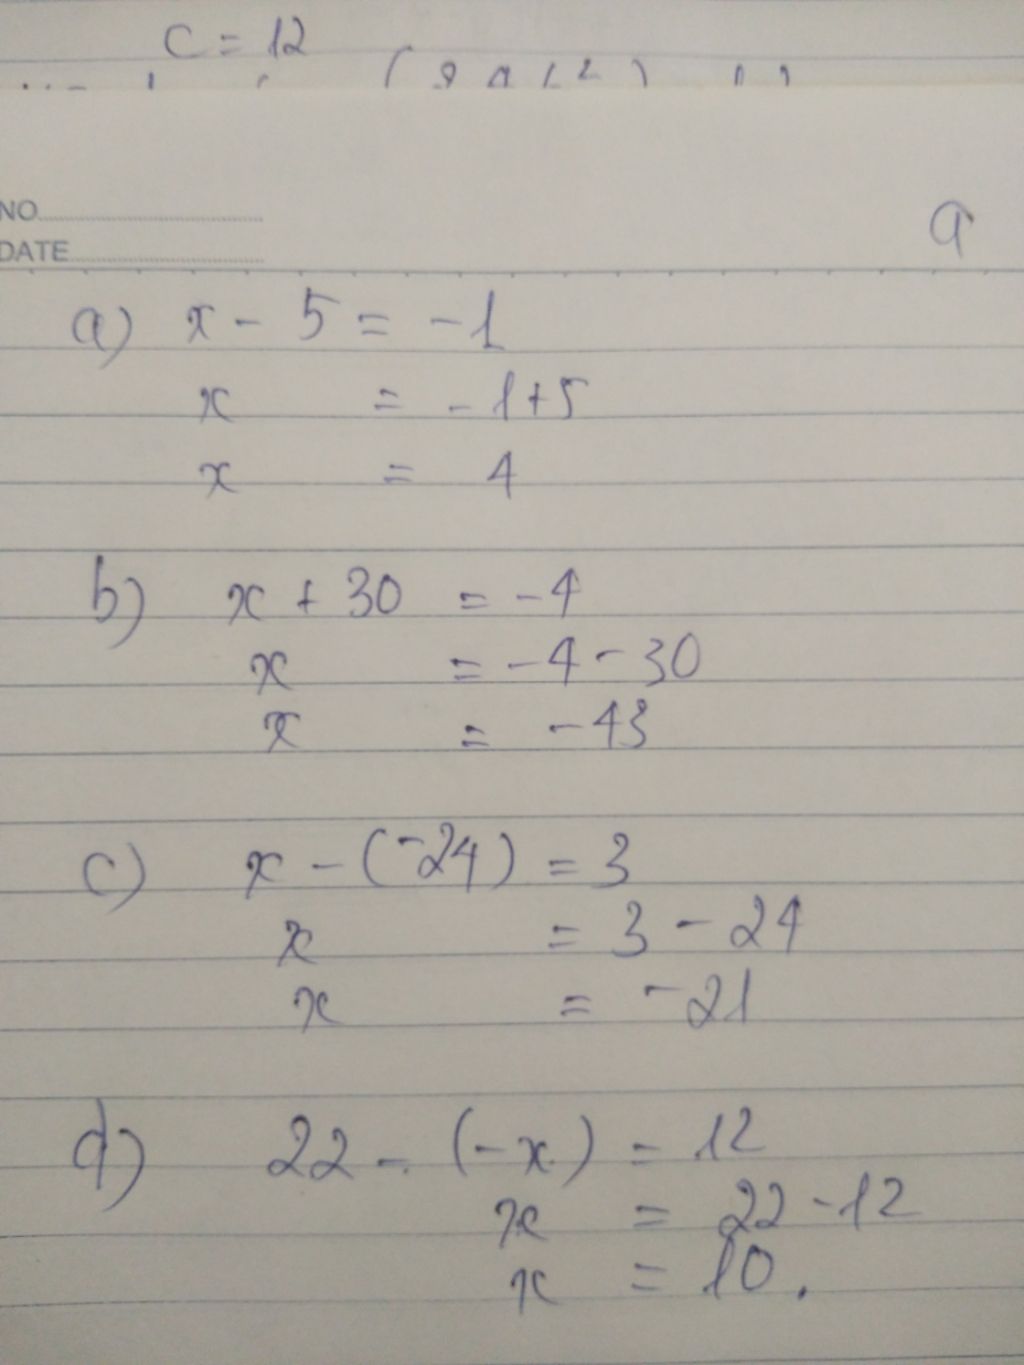 C = 12
NO
DATE
a) x - 5 = -1
x = -1+5
x = 4
b) x + 30 = -4
x = -4 - 30
x = -43
c) x - (-24) = 3
x = 3 - 24
x = -21
d) 22 - (-x) = 12
x = 22 - 12
x = 10.